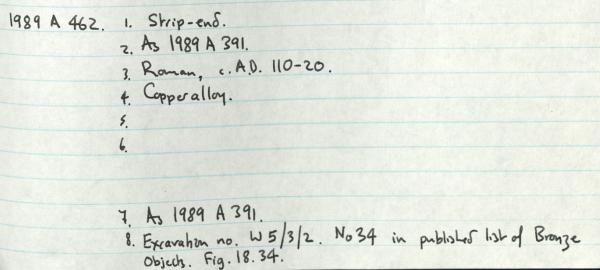 1989 A 462. 1. Strip-end.
2. As 1989 A 391.
3. Roman, c. A.D. 110-20.
4. Copper alloy.
5.
6.
7. As 1989 A 391.
8. Excavation no. W5/3/2. No 34 in published list of Bronze
Objects. Fig. 18. 34.